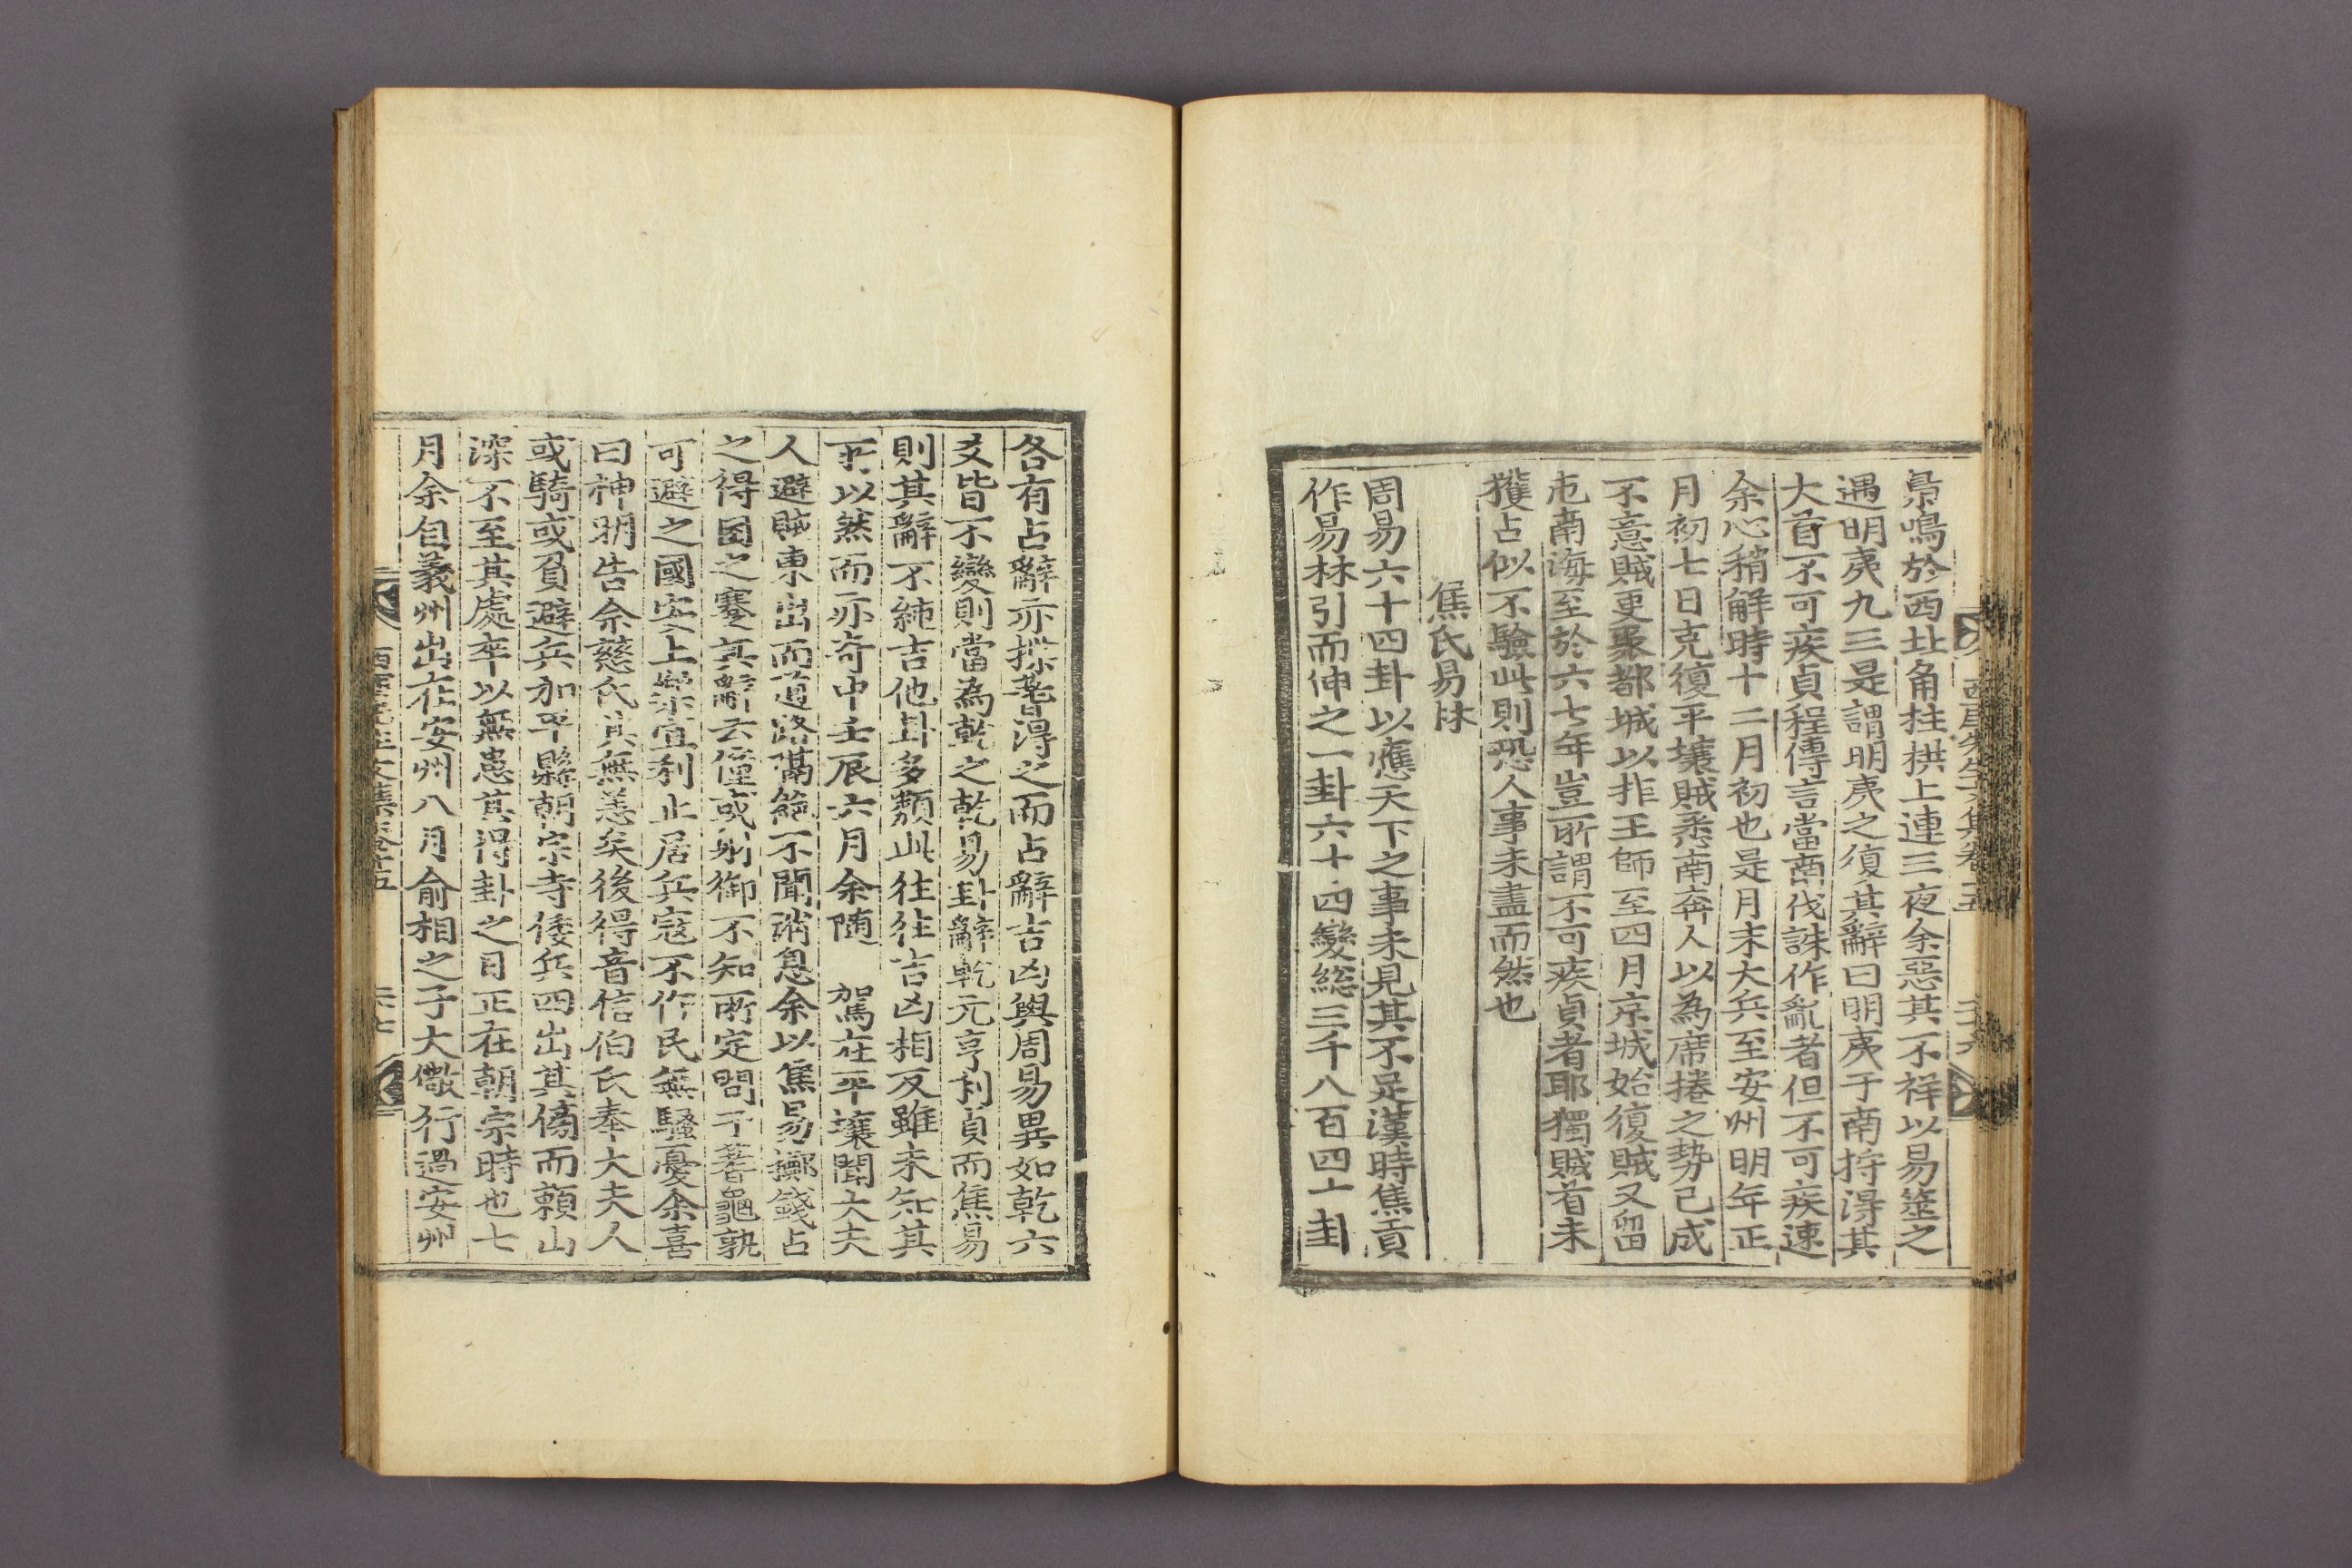 梟鳴於西北角柱栱上連三夜余惡其不祥以易筮之
遇明夷九三是謂明夷之復其辭曰明夷于南狩得其
大首不可疾貞程傳言當商伐誅作亂者但不可疾速
余心稍解時十二月初也是月末大兵至安州明年正
月初七日克復平壤賊悉南奔人以為席捲之勢已成
不意賊更聚都城以拒王師至四月京城始復賊又留
屯南海至於六七年豈所謂不可疾貞者耶獨賊首未
獲占似不驗此則恐人事未盡而然也
焦氏易林
周易六十四卦以應天下之事未見其不足漢時焦貢
作易林引而伸之一卦六十四變総三千八百四十卦
西厓先生文集卷十五
二十六
各有占辭亦揲蓍得之而占辭吉凶與周易異如乾六
爻皆不變則當為乾之乾易卦辭乾元亨利貞而焦易
則其辭不純吉他卦多類此往往吉凶相反雖未知其
所以然而亦奇中壬辰六月余隨 駕在平壤聞大夫
人避賊東出而道路隔絶不聞消息余以焦易擲錢占
之得困之蹇其辭云僮或射御不知所定問于蓍龜孰
可避之國安土樂宜利止居兵寇不作民無騷憂余喜
曰神明告余慈氏其無恙矣後得音信伯氏奉大夫人
或騎或負避兵加平縣朝宗寺倭兵四出其傍而賴山
深不至其處卒以無患其得卦之日正在朝宗時也七
月余自義州出在安州八月俞相之子大儆行過安州
西厓先生文集卷十五
二十七